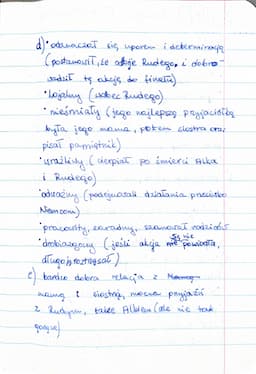 d) • odznaczał się uporem i determinacją
(postanowił, że odbije Rudego, i dopro-
wadził tę akcję do finału)
• lojalny (wobec Rudego)
• nieśmiały (jego najlepszą przyjaciółką
była jego mama, potem siostra oraz
pisał pamiętnik)
• wrażliwy (cierpiał po śmierci Alka
i Rudego)
• odważny (podejmował działania przeciwko
Niemcom)
• pracowity, zaradny, szanował rodziców
• drobiazgowy (jeśli akcja się nie powiodła,
długo ją roztrząsał)
e) bardzo dobra relacja z
mamą i siostrą, mocna przyjaźń
z Rudym, także Alkiem (ale nie tak
gorące)